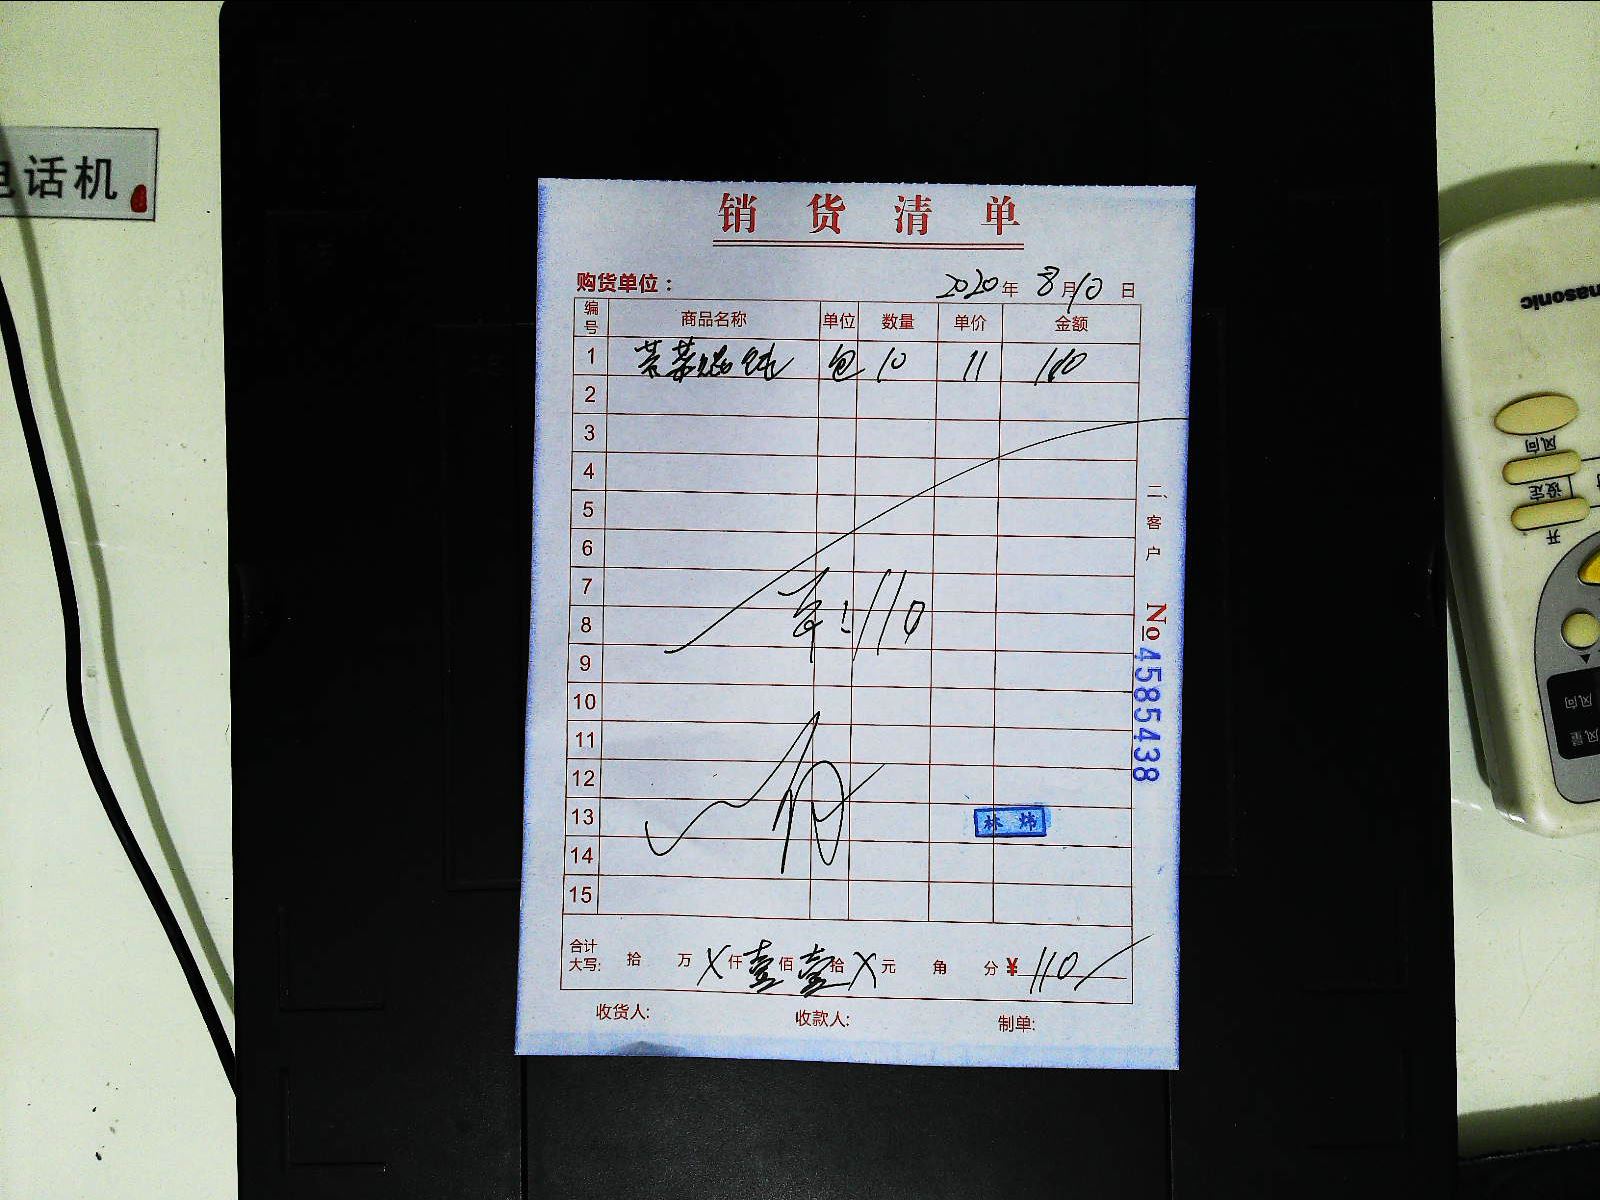 电话机
销货清单
购货单位： 2020年8月10日
编号 商品名称 单位 数量 单价 金额
1 包 10 11 110
2
3
4
5
6
7
8
110
9
10
11
12
13
林炜
14
15
合计大写: 拾 万 X 仟 壹 佰 壹 拾 X 元 角 分 ¥ 110
收货人: 收款人: 制单:
二、客户
No 4585438
Panasonic
风向
设定
开
风向
风量